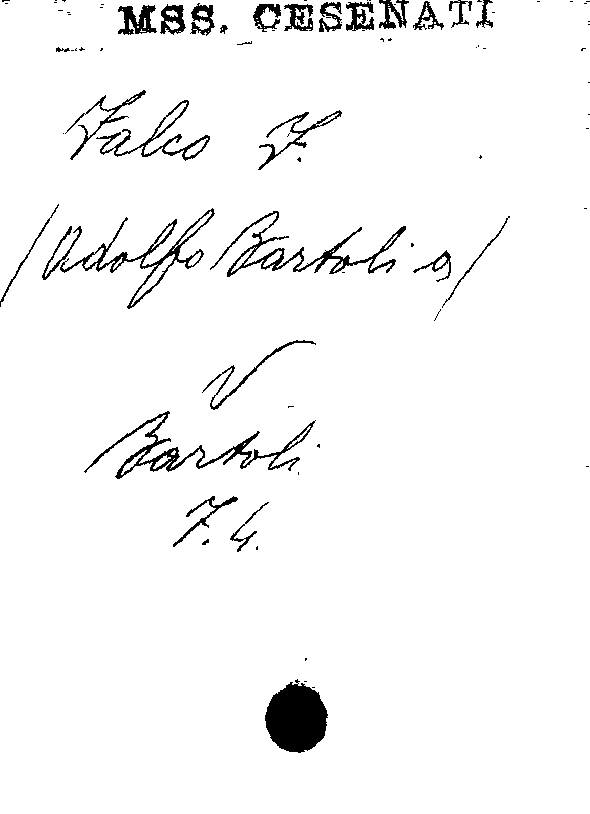 MSS. CESENATI
Falco F.
/Adolfo Bartoli a/
V
Bartoli
F. 4.